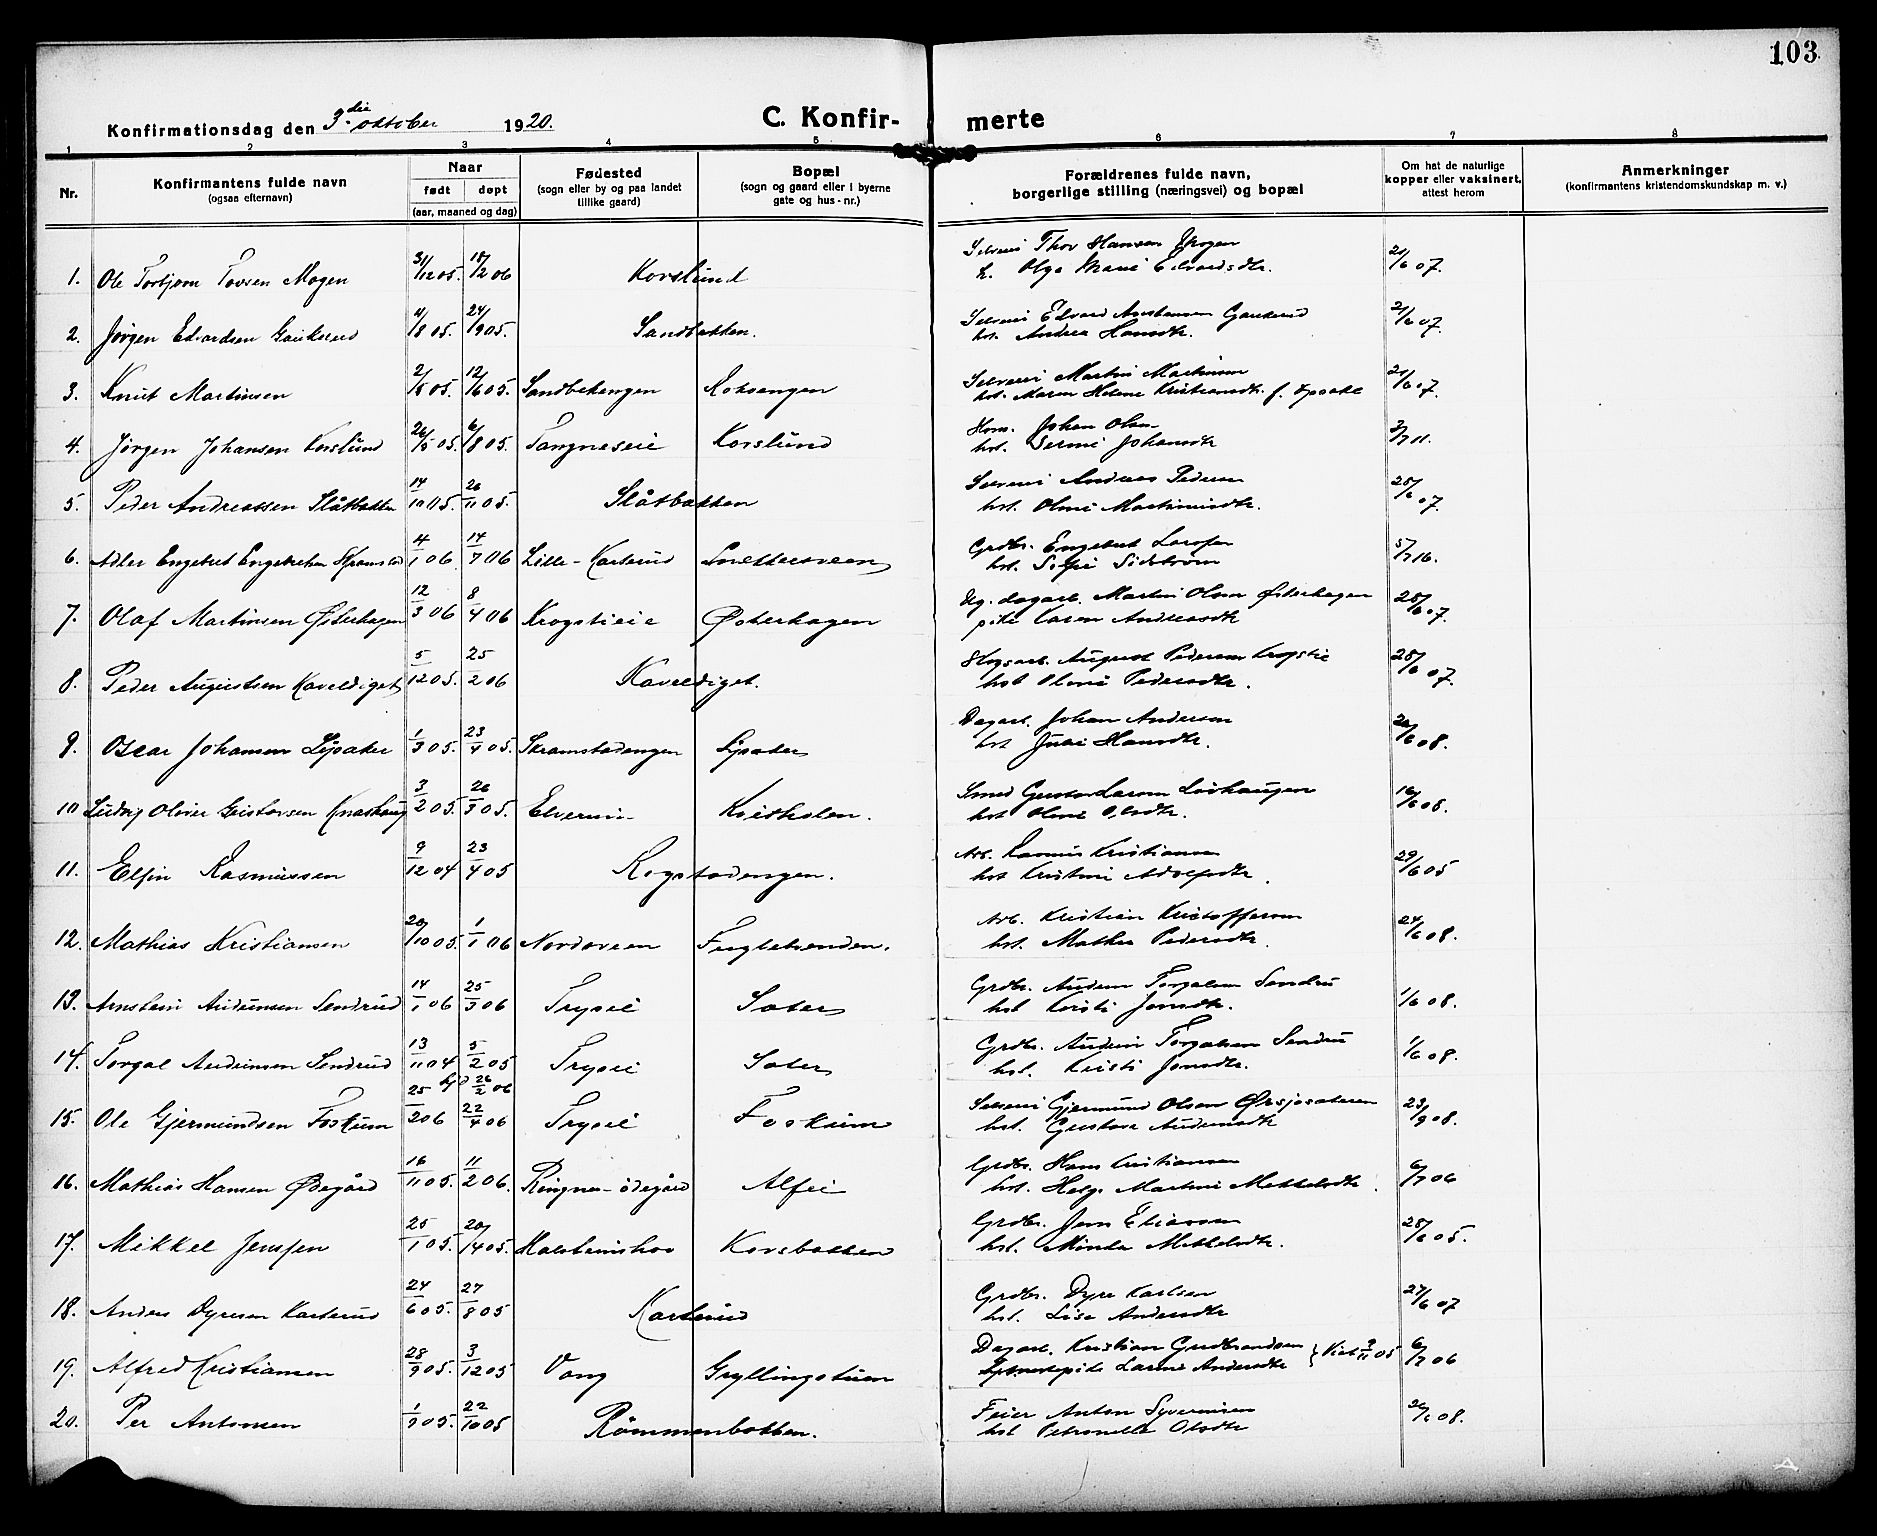 103
Konfirmationsdag den 3die oktober 1920. C. Konfir- merte
1 2 3 4 5 6 7 8
Nr. Konfirmantens fulde navn (ogsaa efternavn) Naar født døpt (aar, maaned og dag) Fødested (sogn eller by og paa landet tillike gaard) Bopæl (sogn og gaard eller i byerne gate og hus-nr.) Forældrenes fulde navn, borgerlige stilling (næringsvei) og bopæl Om hat de naturlige kopper eller vaksinert, attest herom Anmerkninger (konfirmantens kristendomskundskap m. v.)
1. Ole Torbjørn Tovsen Mogen 31/12 05. 18/2 06 Korslund Selveiei Thov Hansen Mogen
h. Olga Marie Edvardsdtr. 21/6 07.
2. Jørgen Edvardsen Gaukerud 4/8 05. 24/9 05. Sandbakken. Selveiei Edvard Gaukerud
hst. Andrea Hansdtr. 21/6 07.
3. Knut Martinsen 2/5 05. 12/6 05. Sandbekengen Roksengen Selveiei Martin Martinsen
hst. Maren Helene Kristiansdtr. f. Epsake 21/6 07.
4. Jørgen Johansen Korslund 26/5 05. 6/8 05. Tangneseie Korslund Hsm. Johan Olsen
hst. Serine Johansdtr 3/7 11.
5. Peder Andreassen Slåtbakken 14/10 05. 26/11 05. Slåtbakken Selveiei Andreas Pedersen
hst. Oline Martinusdtr. 25/6 07.
6. Adler Engebret Engebretsen Skramstad 4/1 06 14/7 06 Lille-Karterud Snekkersveen Grdbr. Engebret Larsen
hst. Sofie Sidström 5/7 16.
7. Olaf Martinsen Østerhagen 12/3 06 8/4 06 Krogstieie Østerhagen Ug. dagarb. Martin Olsen Østerhagen
pike Karen Andreasdtr 25/6 07.
8. Peder Augustsen Kaveldiget 5/12 05. 25/2 06 Kaveldiget. Skogsarb. August Pedersen Krogstie
hst Oline Pedersdtr. 25/6 07.
9. Oscar Johansen Lysaker 1/3 05. 23/4 05. Skramstadengen Lysaker Dagarb. Johan Andersen
hst Julie Hansdtr. 26/6 08.
10 Ludvig Oliver Gustavsen Knashaug 3/2 05. 26/3 05. Elverum Kvisthalen. Smed Gustav Larsen Lövhaugen
hst Oline Olsdtr. 16/6 08.
11. Elfin Rasmussen 9/12 04 23/4 05 Rogstadengen. Arb. Rasmus Kristiansen
hst Kristine Adolfsdtr. 29/6 05
12. Mathias Kristiansen 20/10 05. 1/1 06 Nordsveen Fuglestranden. Arb. Kristian Kristoffersen
hst. Mathea Pedersdtr. 24/6 08.
13. Arnstein Audunsen Sendrud 14/1 06 25/3 06 Trysil Sæter Grdbr. Audun Torgalsen Sendru
hst Kirsti Jonsdtr. 1/6 08.
14. Torgal Audunsen Sendrud 13/11 04 5/2 05 Trysil Sæter Grdbr. Audun Torgalsen Sendru
hst. Kirsti Jonsdtr. 1/6 08.
15. Ole Gjermundsen Foskum 25/2 06 hjd 26/2 06 22/4 06 Trysil Foskum Selveiei Gjermund Olsen Ørsjøsæteren
hst. Gustava Audunsdtr 23/9 08.
16. Mathias Hansen Ødegård 16/11 05. 11/2 06. Ringnes-ödegård Alfei Grdbr. Hans Kristiansen
hst. Helga Martine Mikkelsdtr. 6/7 06
17. Mikkel Jensen 25/1 05. 20/4 05. Malsteinshov Korsbakken Grdbr. Jens Eliassen
hst. Minda Mikkelsdtr. 28/6 05.
18. Anders Dyresen Karterud 24/6 05. 27/8 05 Karterud Grdbr. Dyre Karlsen
hst. Lisa Andersdtr 27/6 07
19. Alfred Kristiansen 28/9 05. 3/12 05 Vang Gryllingstuen Dagarb. Kristian Gudbrandsen
pike Larine Andersdtr } Viet 9/11 05 6/7 06
20. Per Antonsen 1/9 05. 22/10 05 Rømmenbakken. Feier Anton Syversen
hst Petronella Olsdtr 26/6 08.